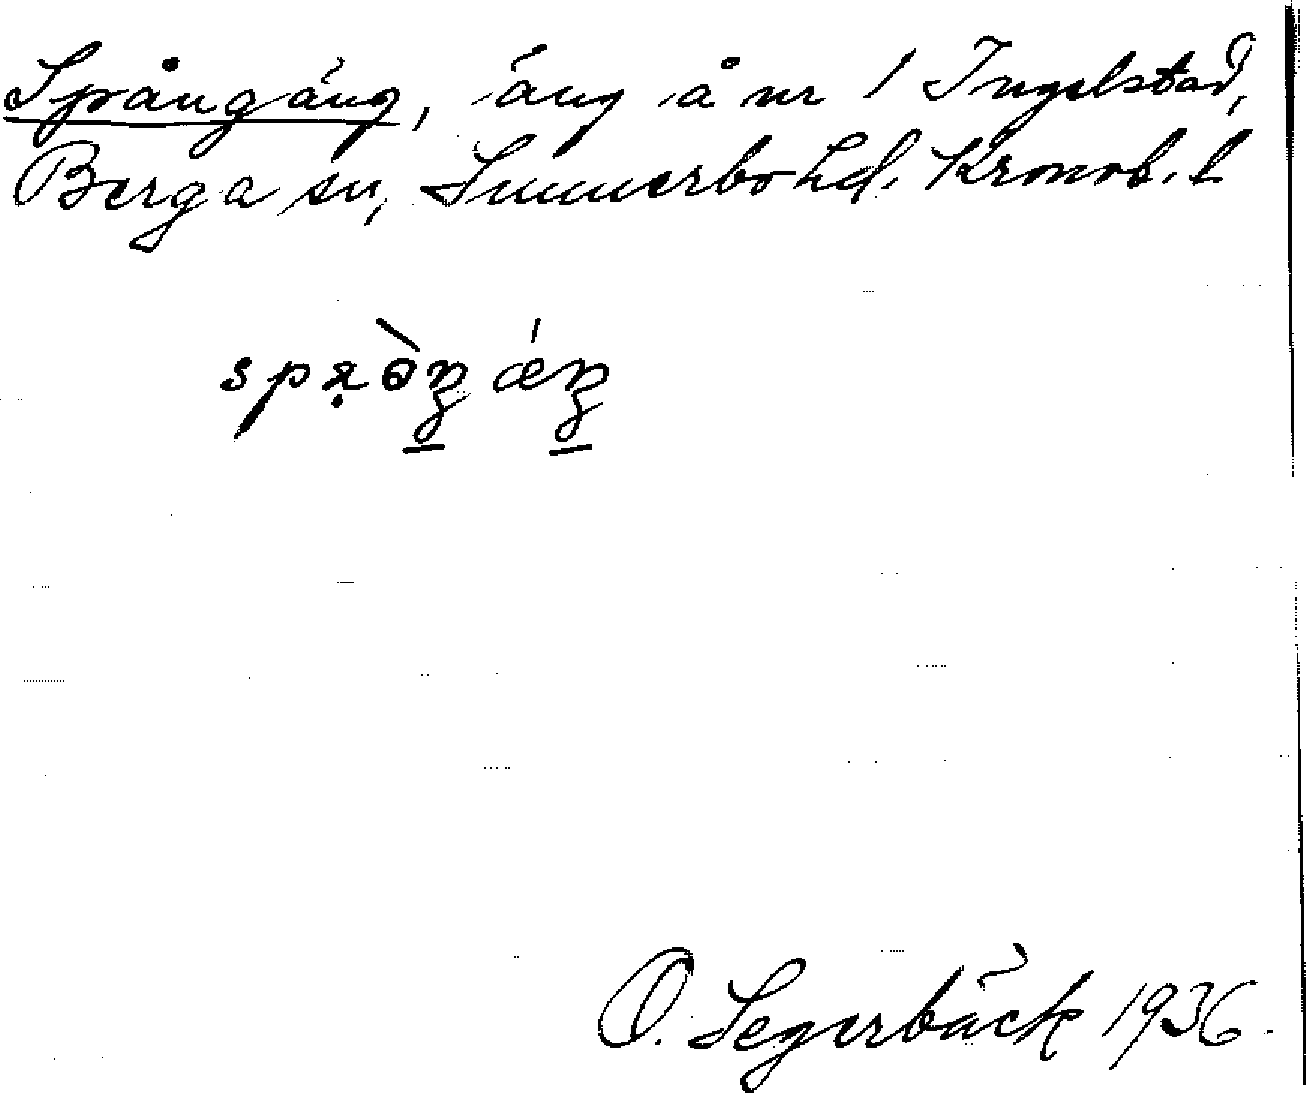 Spångäng, äng å nr 1 Ingelstad,
Berga sn, Sunnerbo hd. Kronob. l
O. Segerbäck 1936.